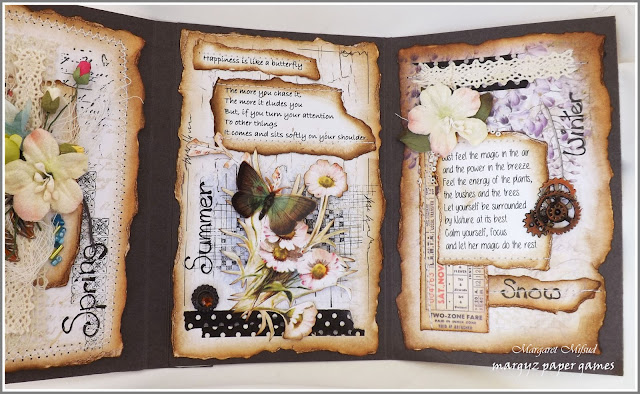 Spring
Happiness is like a butterfly
The more you chase it,
The more it eludes you
But, if you turn your attention
To other things
It comes and sits softly on your shoulder
Summer
Just feel the magic in the air
and the power in the breeze
Feel the energy of the plants,
the bushes and the trees
Let yourself be surrounded
by Nature at its best
Calm yourself, focus
and let her magic do the rest.
Winter
Snow
SAT. NOV.
TWO-ZONE FARE
Margaret Mifsud
margyz paper games